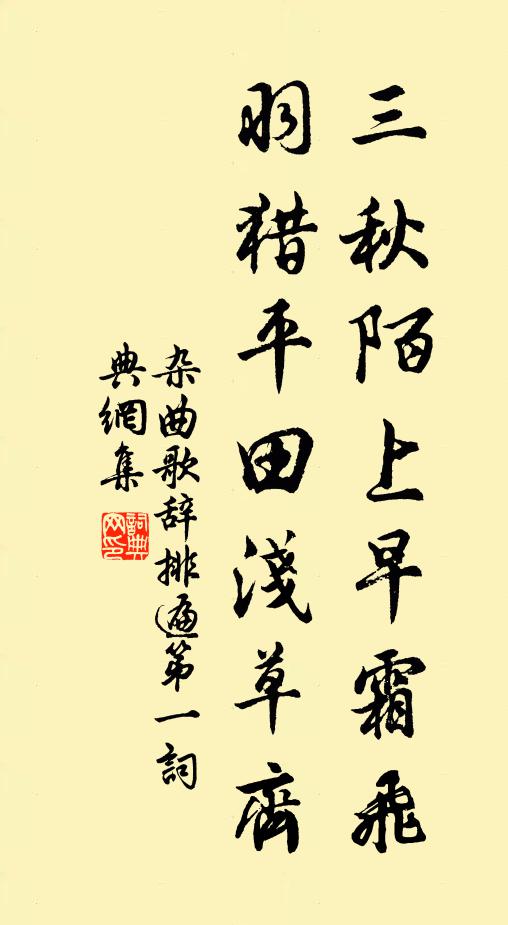 三秋陌上早霜飛
羽猎平田淺草齊
杂曲歌辞排遍第一詞
典網集
詞典网印